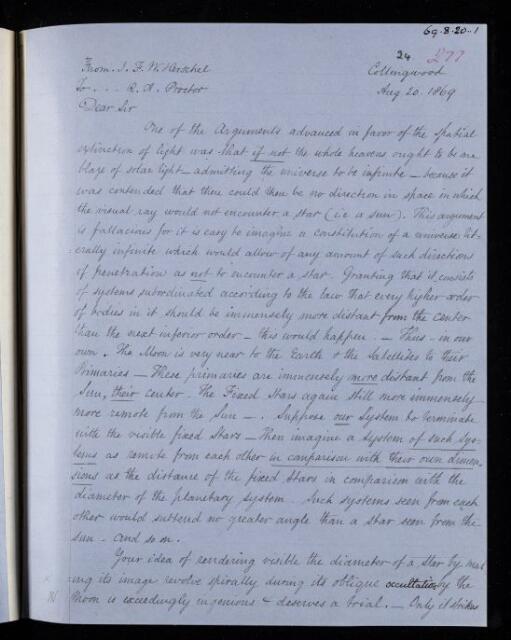 69.8.20..1
24 277
From. J. F. W. Herschel
Collingwood
To . . . R. A. Proctor
Aug 20. 1869
Dear Sir
One of the Arguments advanced in favor of the spatial
extinction of light was that if not the whole heavens ought to be one
blaze of solar light – admitting the universe to be infinite – because it
was contended that there could then be no direction in space in which
the visual ray would not encounter a star (i.e. a sun). This argument
is fallacious for it is easy to imagine a constitution of a universe lit-
=erally infinite which would allow of any amount of such directions
of penetration as not to encounter a star. Granting that it consists
of systems subordinated according to the law that every higher order
of bodies in it should be immensely more distant from the center
than the next inferior order – this would happen. – Thus – in our
own. The Moon is very near to the Earth & the Satellites to their
Primaries – These primaries are immensely more distant from the
Sun, their center. The Fixed Stars again still more immensely
more remote from the Sun –. Suppose our System to terminate
with the visible fixed Stars – Then imagine a System of such Sys-
tems as remote from each other in comparison with their own dimen-
sions as the distance of the fixed Stars in comparison with the
diameter of the planetary System. Such systems seen from each
other would subtend no greater angle than a star seen from the
sun – And so on.
Your idea of rendering visible the diameter of a star by mak
ing its image revolve spirally during its oblique occultation by the
Moon is exceedingly ingenious & deserves a trial. – Only it strikes